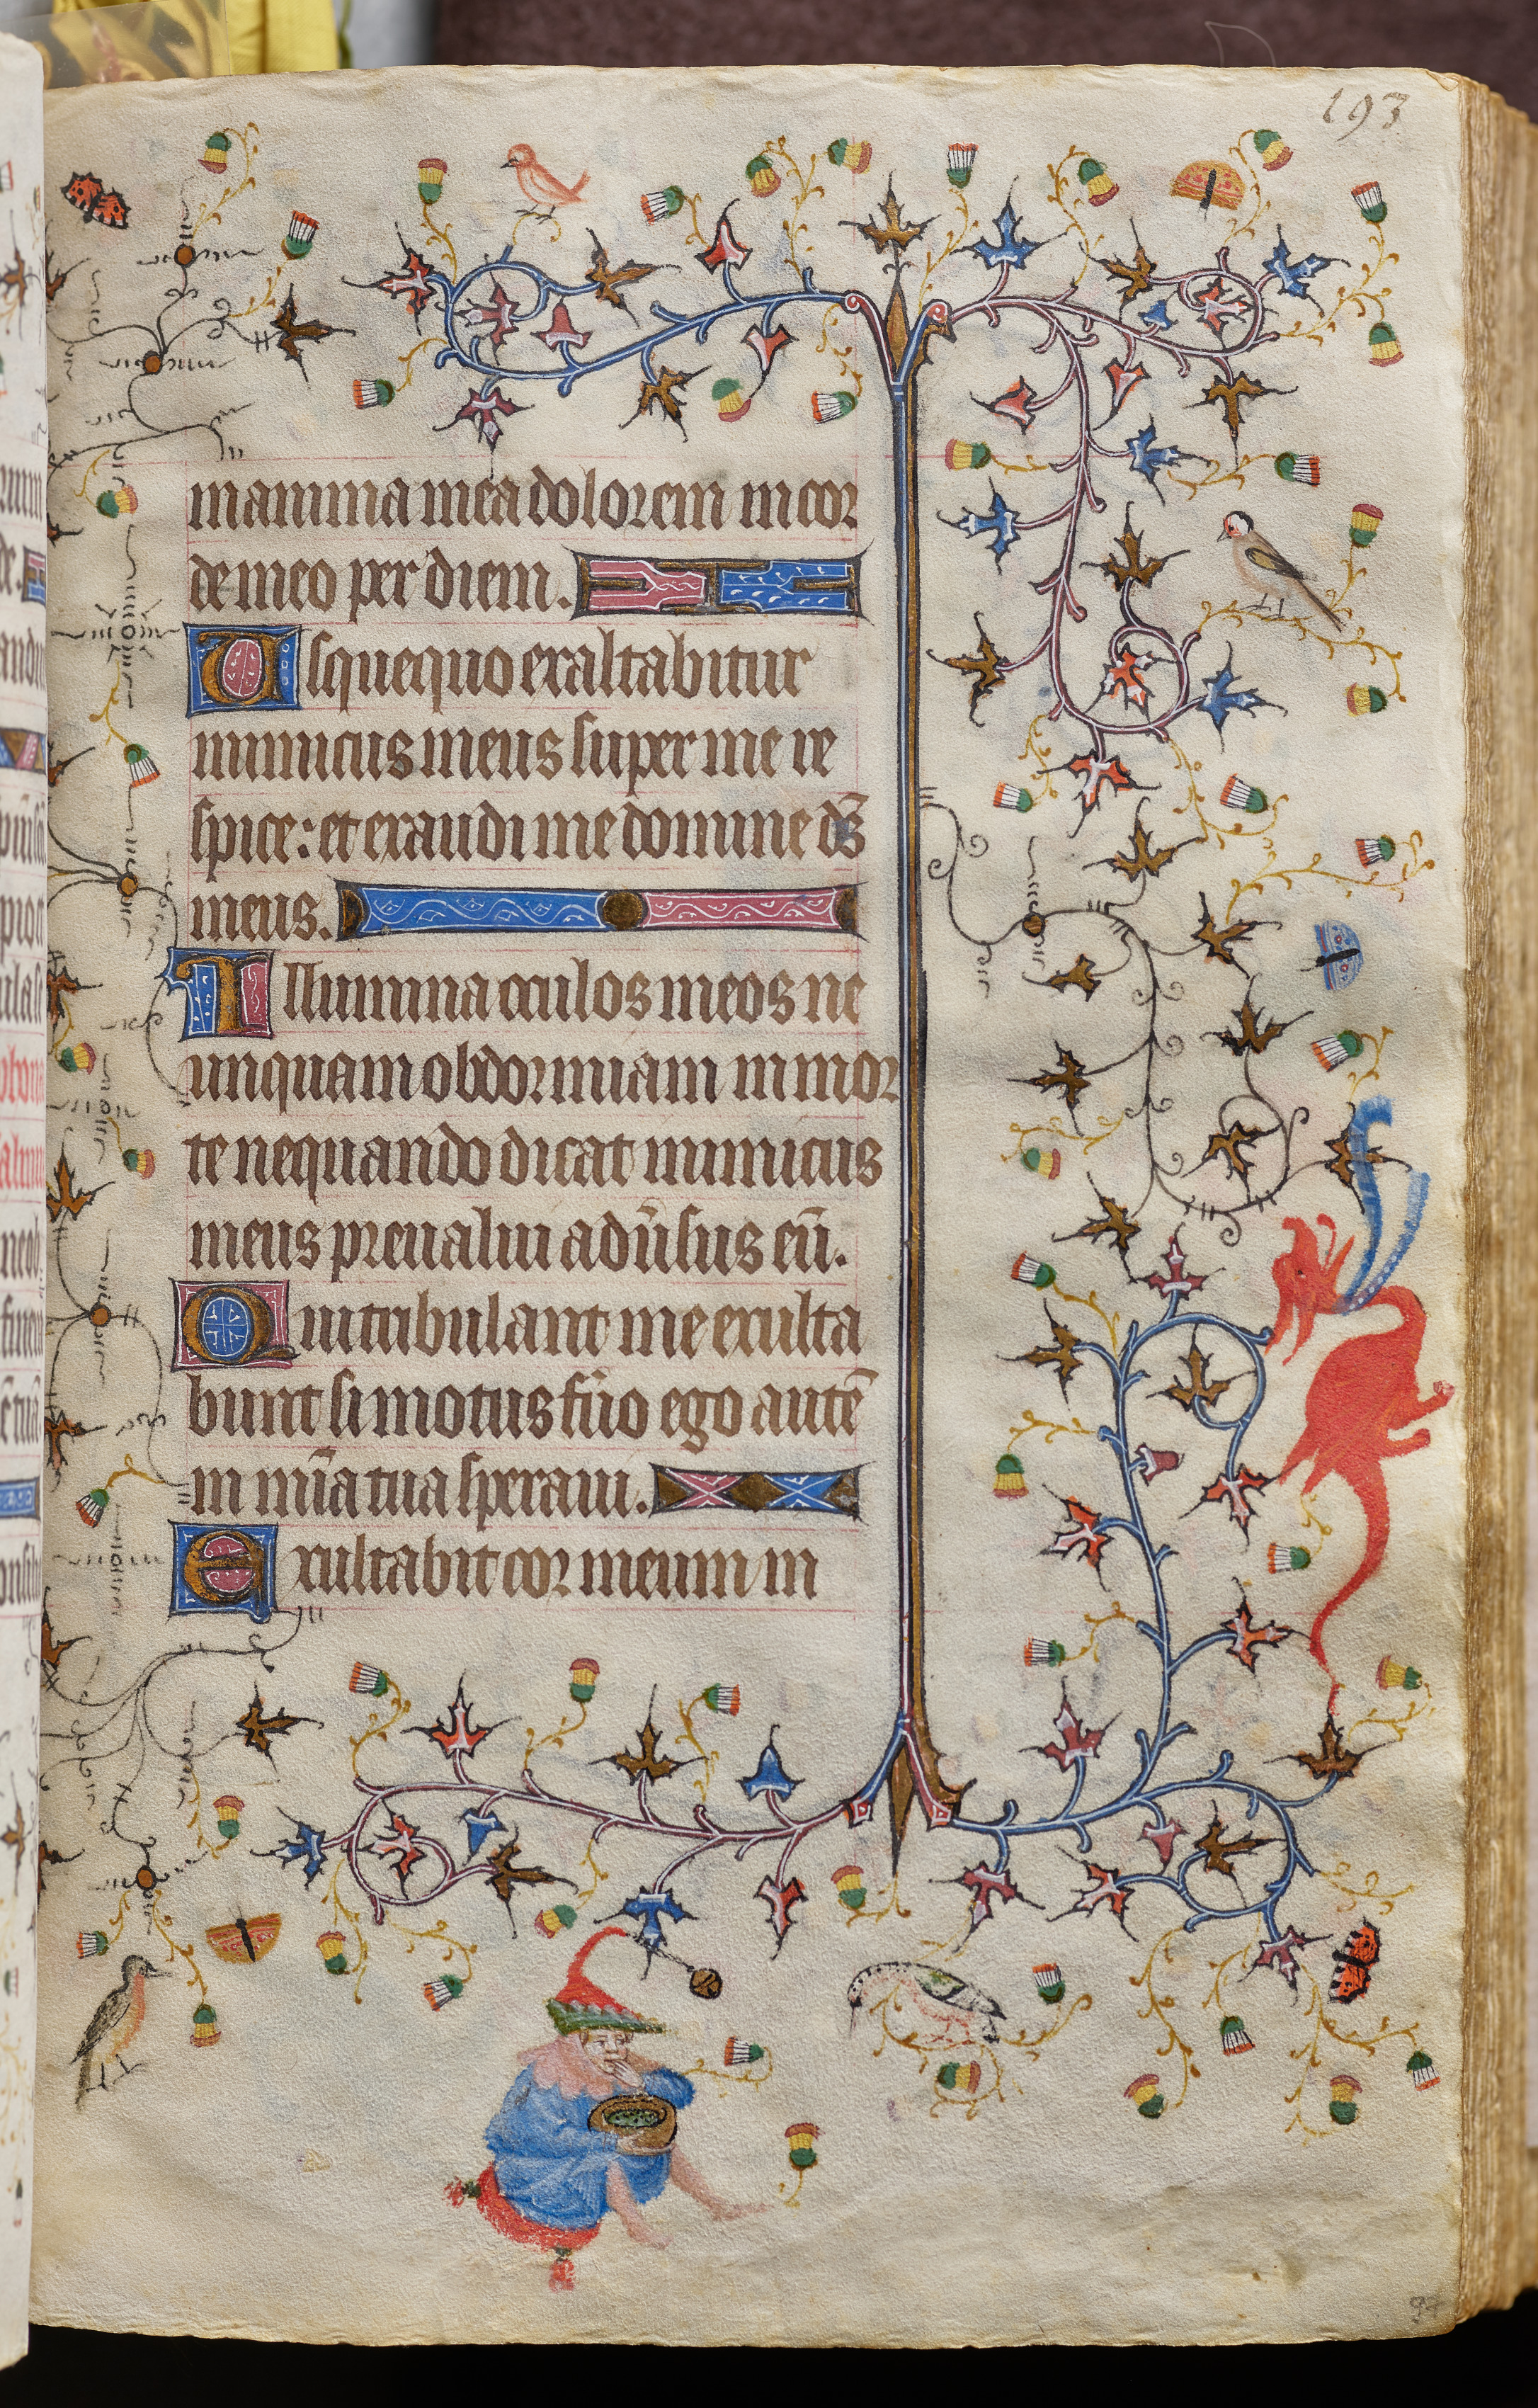 193
in anima mea dolorem in cor
de meo per diem.
Usquequo exaltabitur
inimicus meus super me re
spice: et exaudi me domine ds̄
meus.
Illumina oculos meos ne
unquam obdormiam in mor
te nequando dicat inimicus
meus preualui adūsus eū.
Qui tribulant me exulta
bunt si motus fūo ego autē
in mīa tua speraui.
Exultabit cor meum in